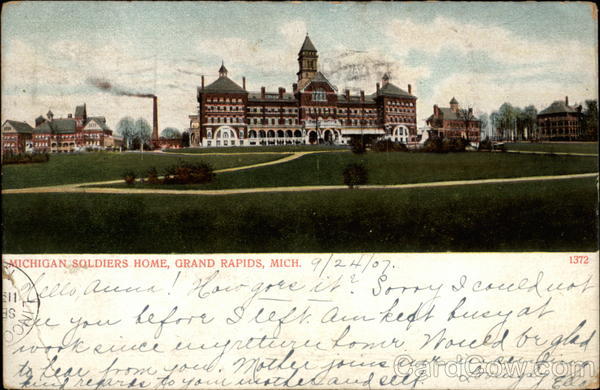 MICHIGAN SOLDIERS HOME, GRAND RAPIDS, MICH. 9/24/07. 1372
Hello, Anna! How goes it? Sorry I could not
see you before I left. Am kept busy at
work since my return home. Would be glad
to hear from you. Mother joins me in sending
kind regards to your mother and self.
CardCow.com